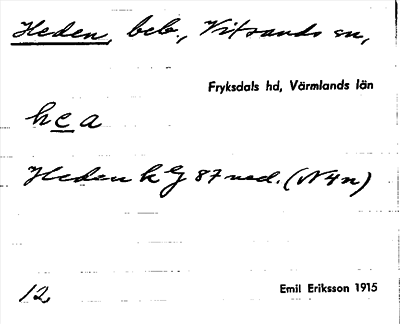 Heden, beb., Vitsands sn,
Fryksdals hd, Värmlands län
he a
Heden k 87 ned. (N4n)
12
Emil Eriksson 1915